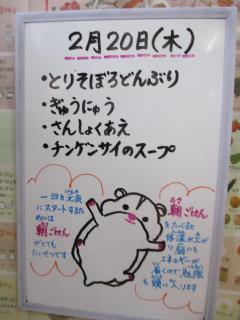 2月20日(木)
・とりそぼろどんぶり
・ぎゅうにゅう
・さんしょくあえ
・チンゲンサイのスープ
一日を元気
にスタートするた
めには
朝ごはん
がとても
たいせつです
朝ごはん
をたべると
体温が上が
り脳にも
エネルギーが
届くので勉強
も頭に入ります